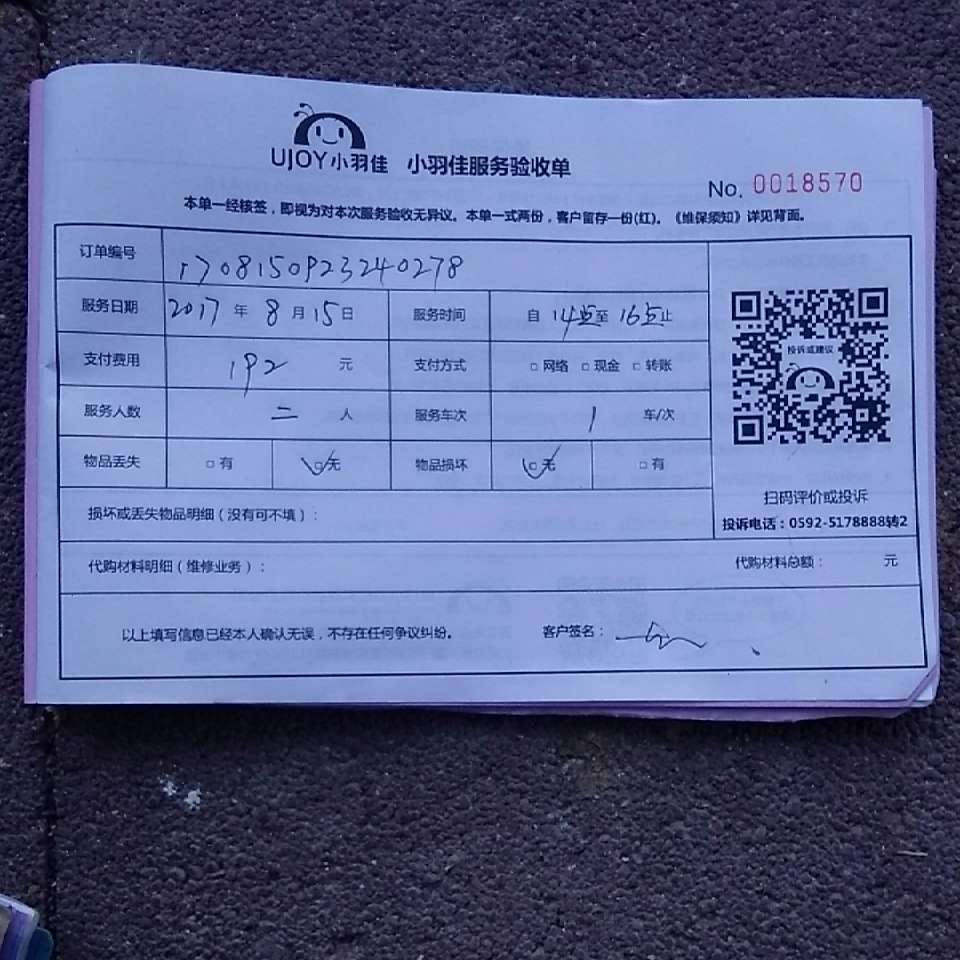 UJOY小羽佳 小羽佳服务验收单
No. 0018570
本单一经核签，即视为对本次服务验收无异议。本单一式两份，客户留存一份(红)。《维保须知》详见背面。
订单编号 1708150923240278
服务日期 2017 年 8 月 15 日 服务时间 自 14点至 16点止
投诉或建议
支付费用 192 元 支付方式 □ 网络 □ 现金 □ 转账
服务人数 二 人 服务车次 1 车/次
物品丢失 □ 有 ☑ 无 物品损坏 ☑ 无 □ 有
扫码评价或投诉
损坏或丢失物品明细（没有可不填）：
投诉电话：0592-5178888转2
代购材料明细（维修业务）： 代购材料总额： 元
以上填写信息已经本人确认无误，不存在任何争议纠纷。 客户签名：